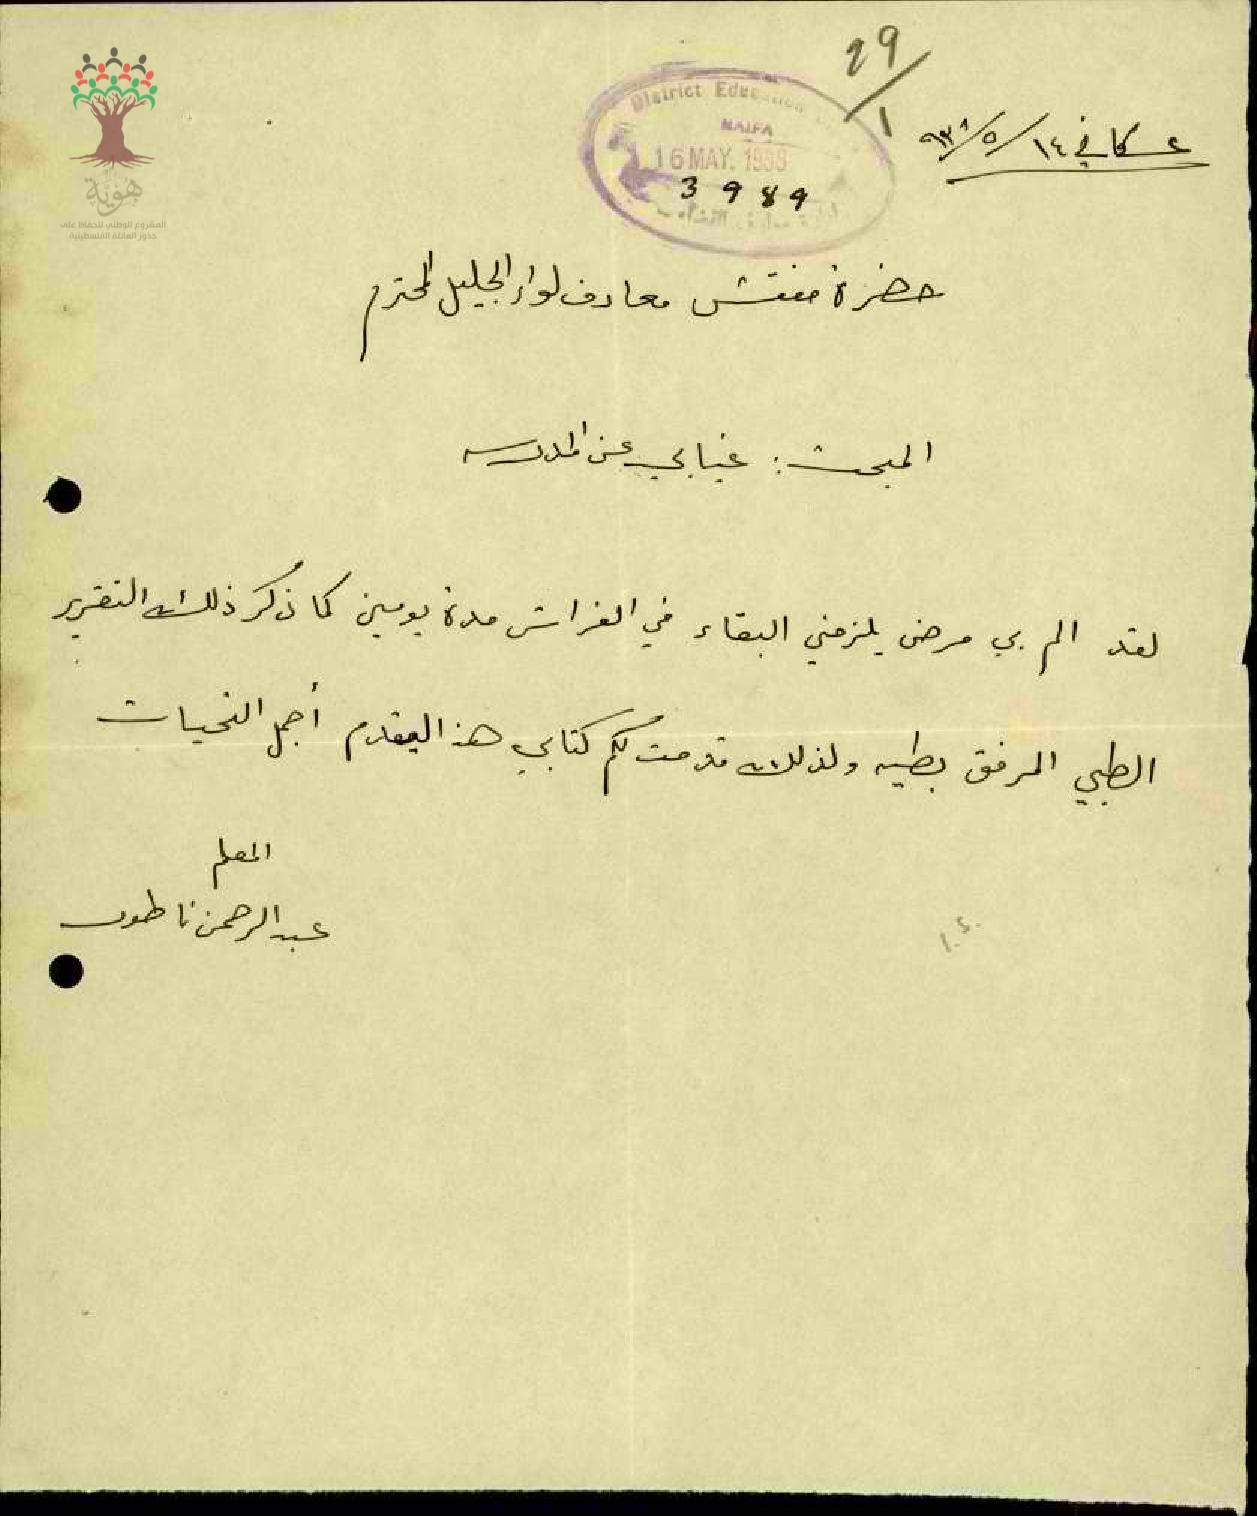 29/1
عكا في ١٤/٥/٩٣٨
District Education
HAIFA
16 MAY. 1938
3989
هويّة
المشروع الوطني للحفاظ على
جذور العائلة الفلسطينية
حضرة مفتش معارف لواء الجليل المحترم
المبحث : غيابي عن المدرسه
لقد الم بي مرض يلزمني البقاء في الفراش مدة يومين كما ذكر ذلك التقرير
الطبي المرفق بطيه ولذلك قدمت لكم كتابي هذا ليقدم أجمل التحيات
المعلم
عبد الرحمن ناطور